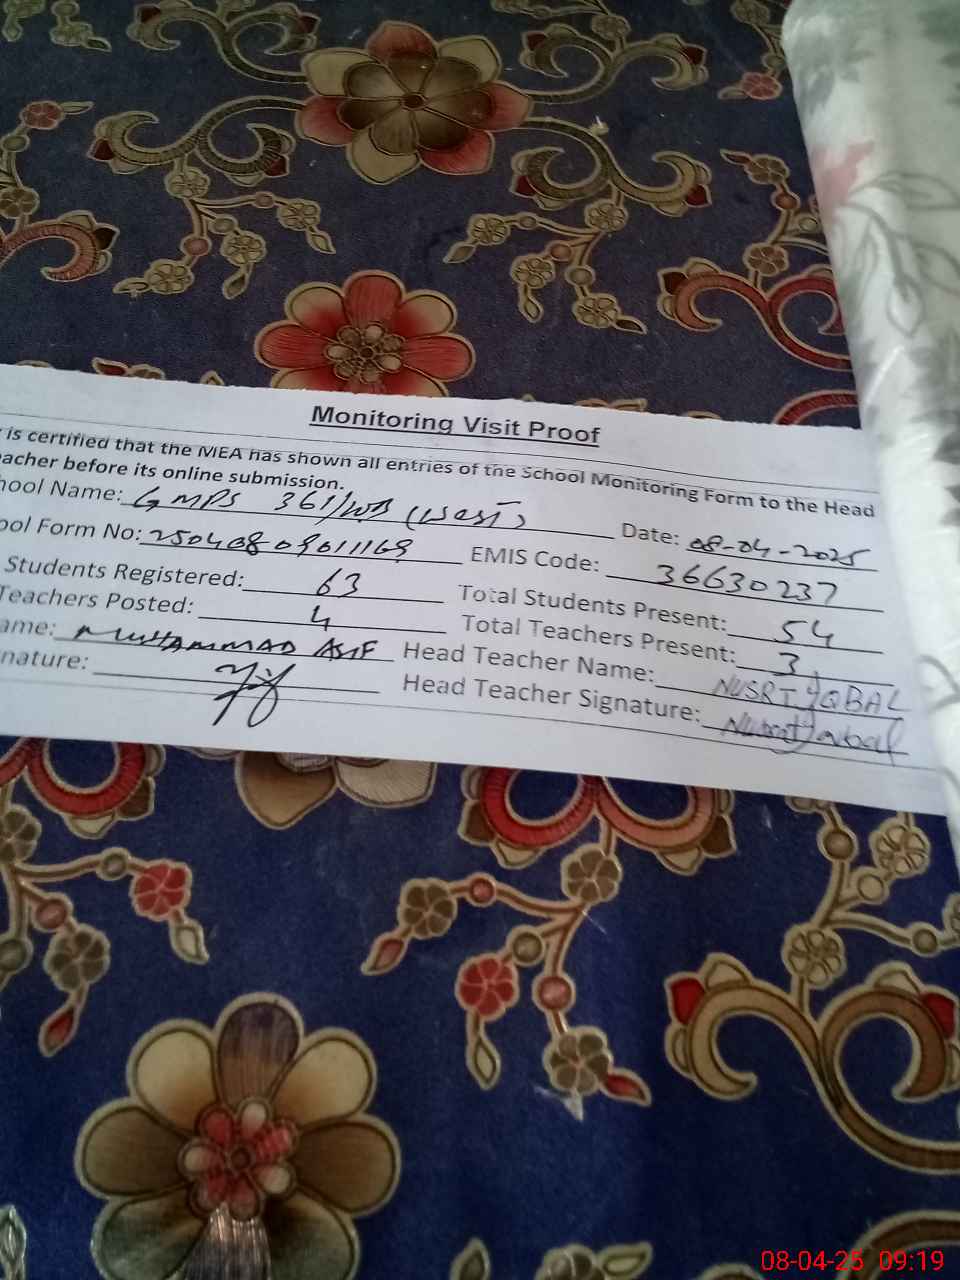 Monitoring Visit Proof
is certified that the MEA has shown all entries of the School Monitoring Form to the Head
acher before its online submission.
hool Name: GMPS 361/WB (West) Date: 08-04-2025
ool Form No: 25040809011169 EMIS Code: 36630237
Students Registered: 63 Total Students Present: 54
Teachers Posted: 4 Total Teachers Present: 3
ame: MUHAMMAD ASIF Head Teacher Name: NUSRT IQBAL
nature: Head Teacher Signature: Nusrat Iqbal
08-04-25 09:19